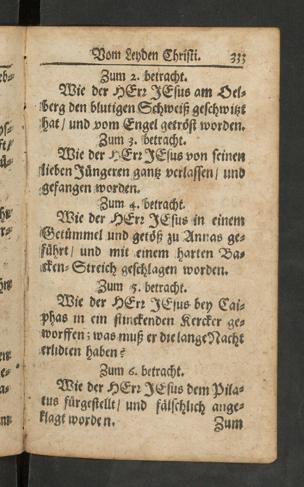 Vom Leyden Christi. 333
Zum 2. betracht.
Wie der HErr JEsus am Oel-
berg den blutigen Schweiß geschwitzt
hat / und vom Engel getröst worden.
Zum 3. betracht.
Wie der HErr JEsus von seinen
lieben Jüngeren gantz verlassen / und
gefangen worden.
Zum 4. betracht.
Wie der HErr JEsus in einem
Getümmel und getöß zu Annas ge-
führt / und mit einem harten Ba-
cken-Streich geschlagen worden.
Zum 5. betracht.
Wie der HErr JEsus bey Cai-
phas in ein stinckenden Kercker ge-
worffen; was muß er die lange Nacht
erlidten haben?
Zum 6. betracht.
Wie der HErr JEsus dem Pila-
tus fürgestellt / und fälschlich ange-
klagt worden.
Zum